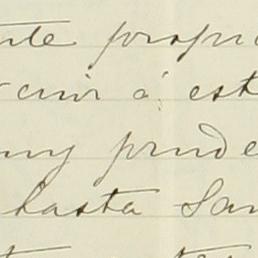 nte propi
venir á est
muy prude
hasta San